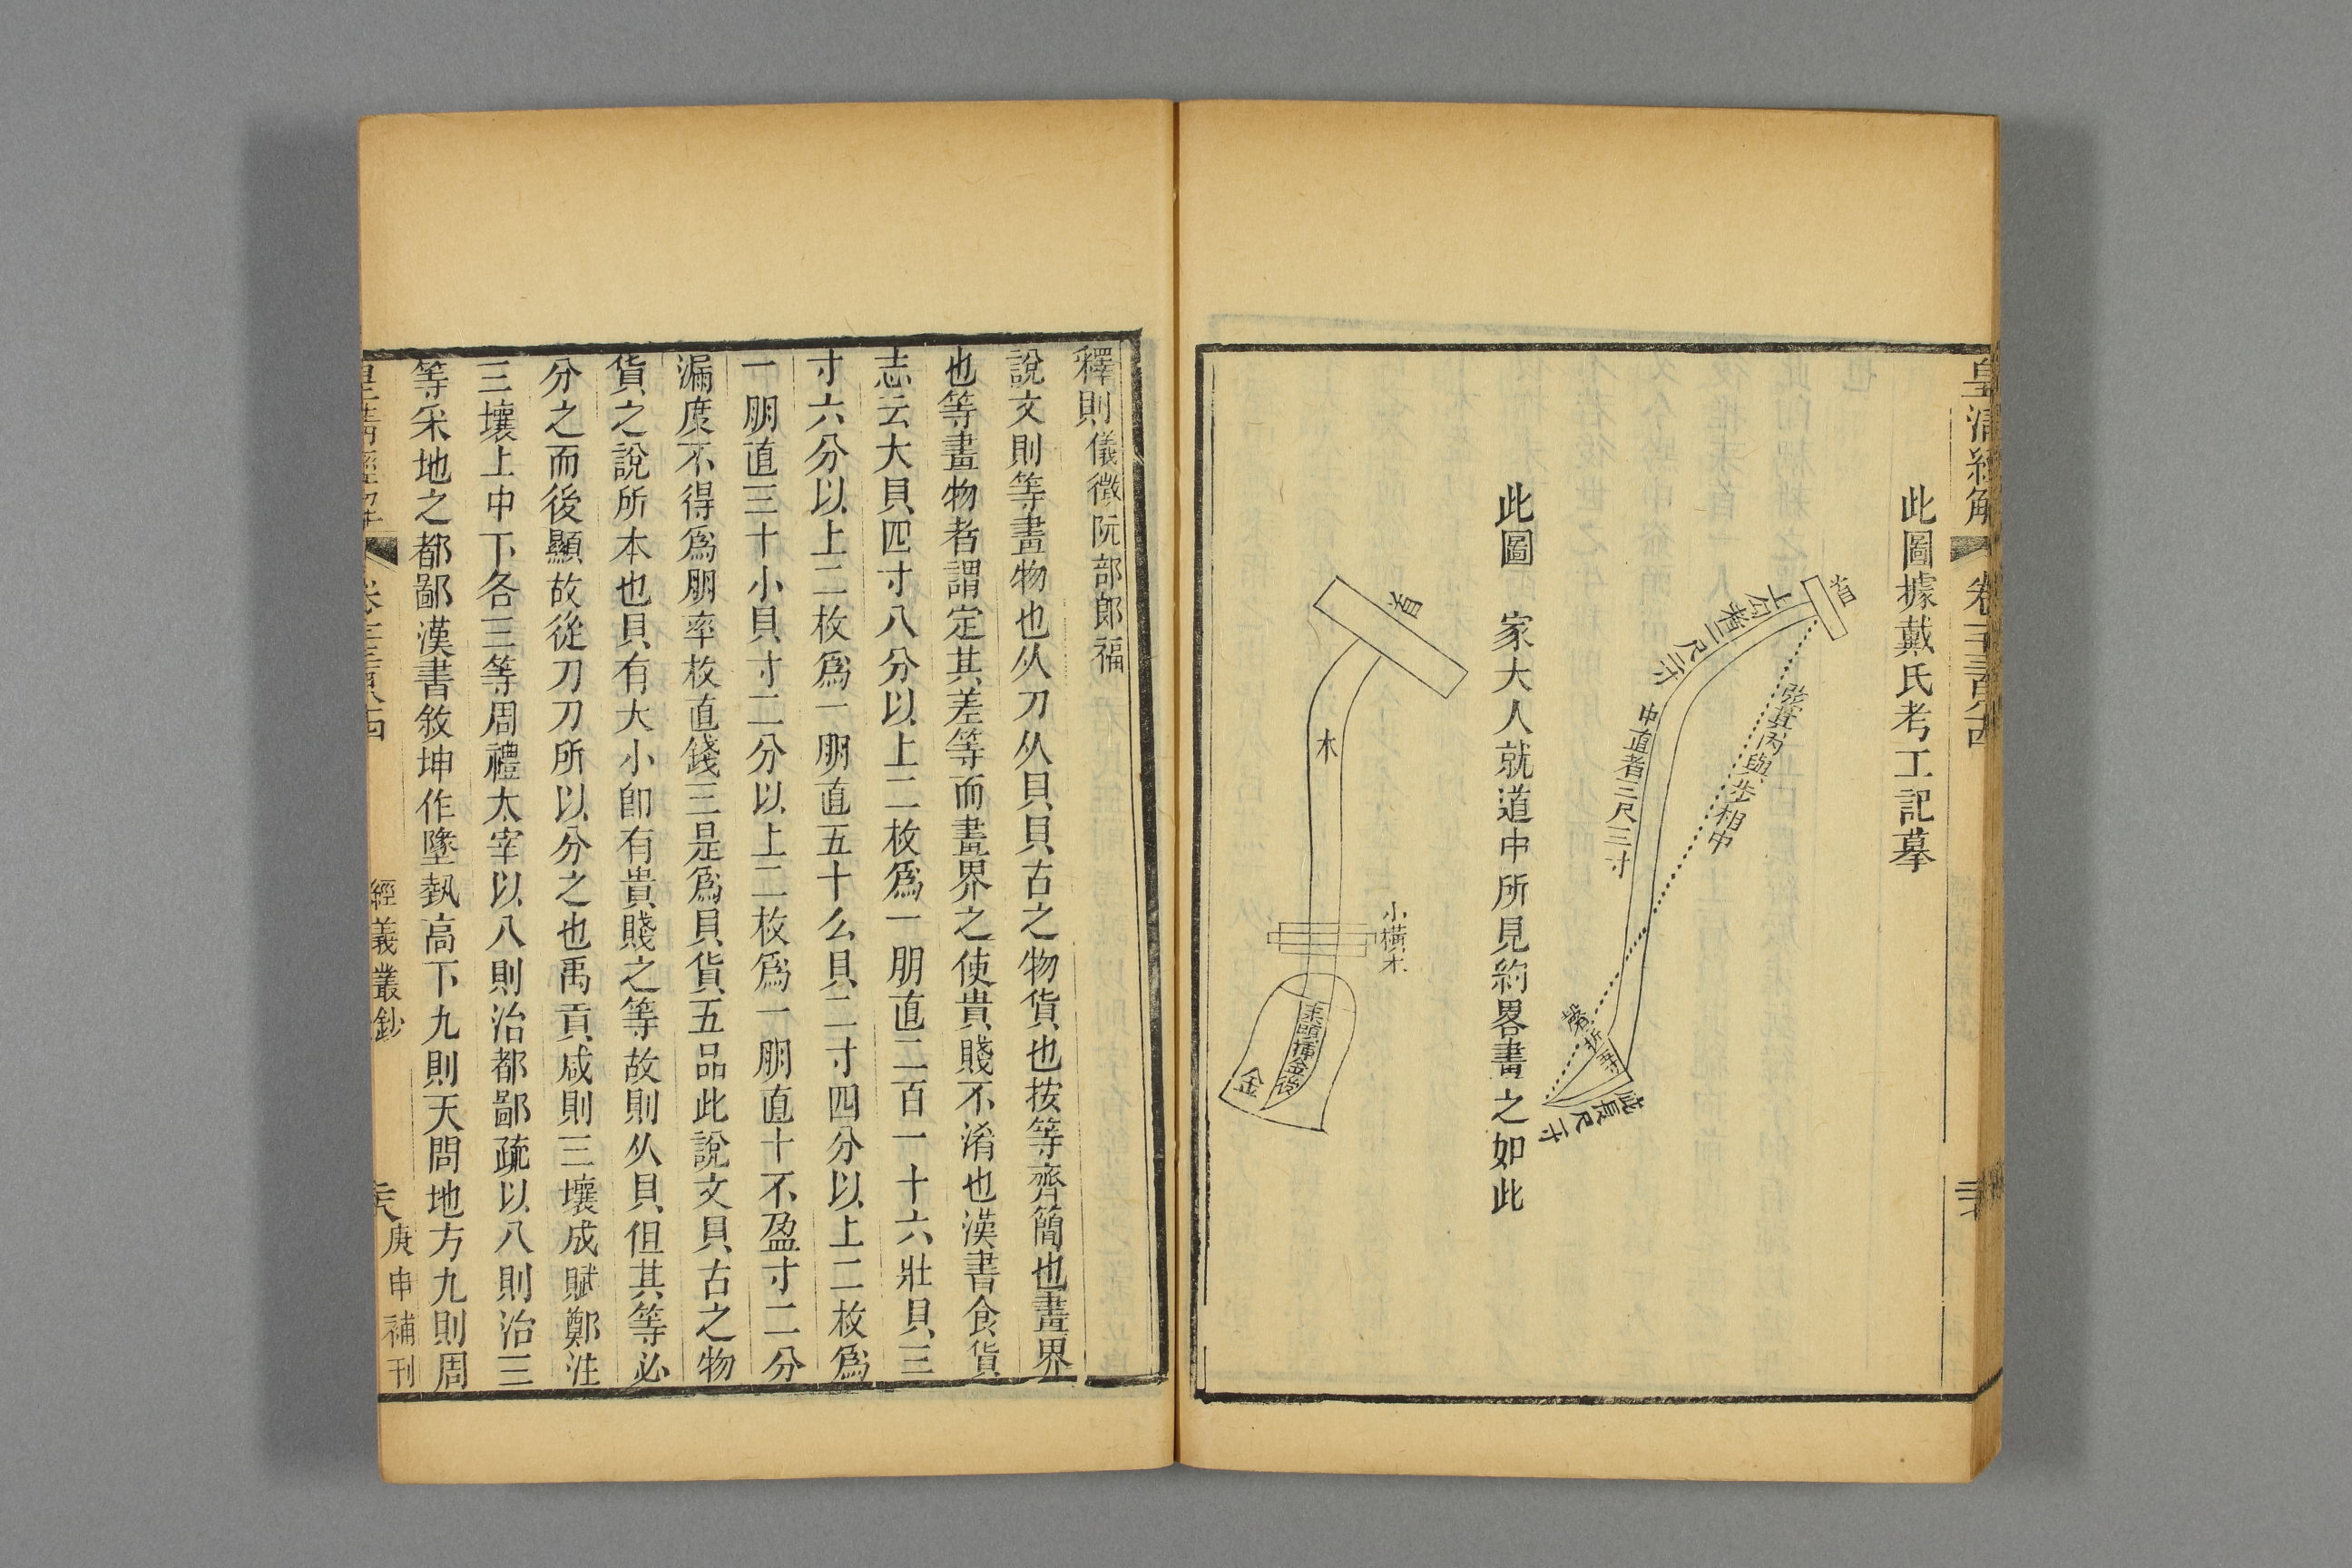 皇清經解
此圖據戴氏考工記摹
上句者二尺二寸
弦其內與步相中
中直者三尺三寸
磬折
此圖 家大人就道中所見約畧畫之如此
木
小橫木
耒頭插金後
金
釋則儀徵阮部郎福
說文則等畫物也从刀从貝貝古之物貨也按等齊簡也畫界
也等畫物者謂定其差等而畫界之使貴賤不淆也漢書食貨
志云大貝四寸八分以上二枚爲一朋直二百一十六壯貝三
寸六分以上二枚爲一朋直五十么貝二寸四分以上二枚爲
一朋直三十小貝寸二分以上二枚爲一朋直十不盈寸二分
漏度不得爲朋率枚直錢三是爲貝貨五品此說文貝古之物
貨之說所本也貝有大小卽有貴賤之等故則从貝但其等必
分之而後顯故從刀刀所以分之也禹貢咸則三壤成賦鄭注
三壤上中下各三等周禮太宰以八則治都鄙疏以八則治三
等采地之都鄙漢書敘坤作墬埶高下九則天問地方九則周
經義叢鈔
庚申補刊